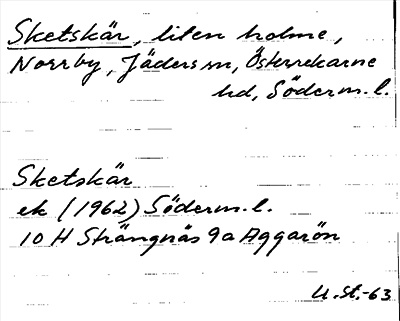 Sketskär, liten holme,
Norrby, Jäders sn, Österrekarne
hd, Söderm. l.
Sketskär
ek (1962) Söderm. l.
10 H Strängnäs 9a Aggarön
U.St.-63